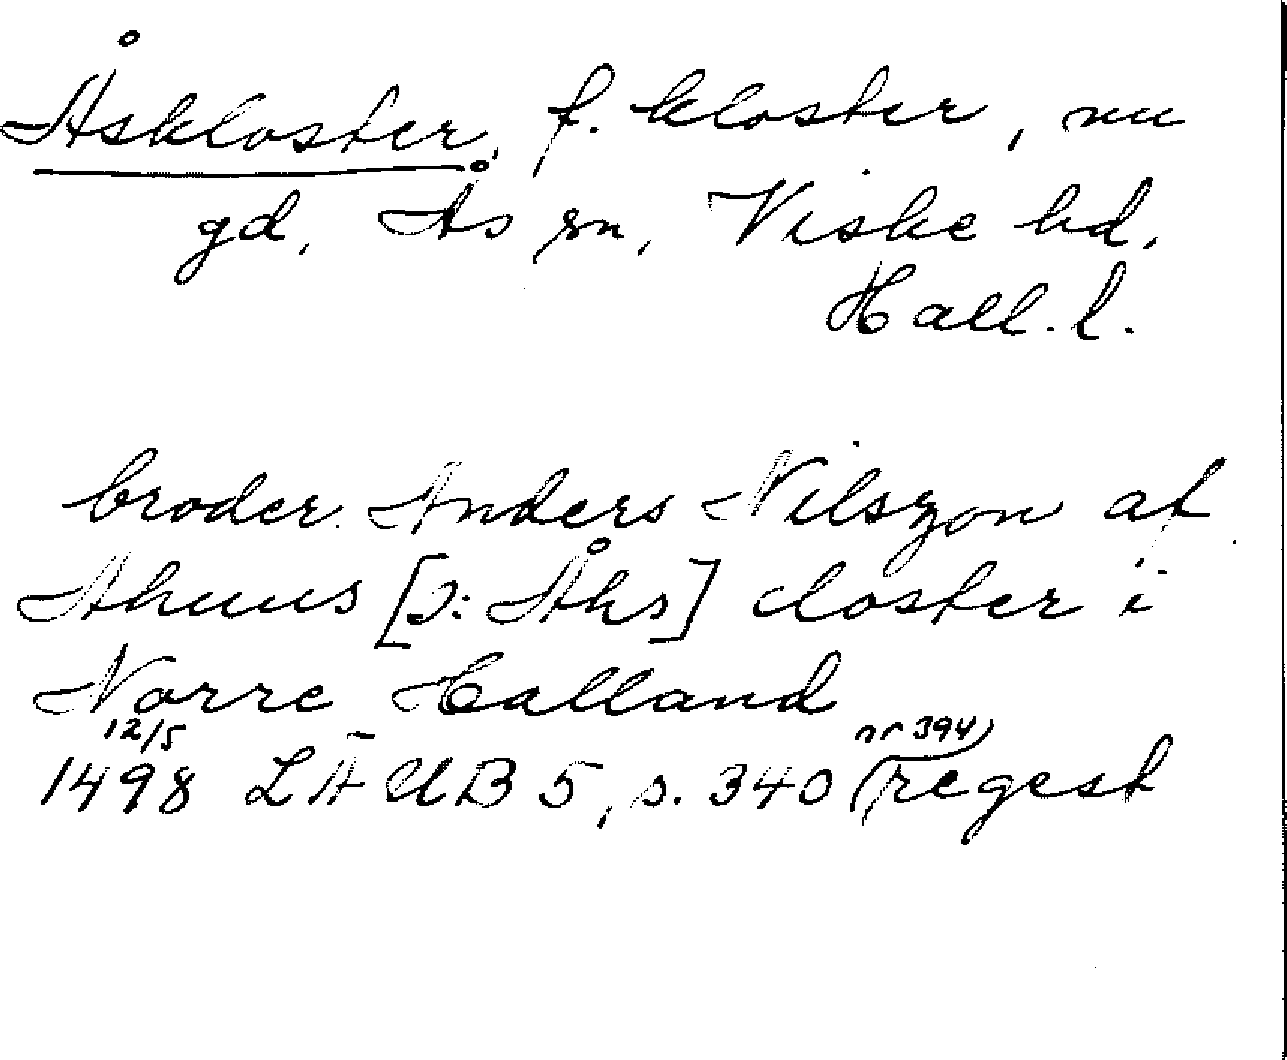 Åskloster, f. kloster, nu
gd, Ås sn, Viske hd,
Hall. l.
broder Anders Nilszon af
Ahuus [ɔ: Åhs] closter i
Norre Halland
12/5 nr 394)
1498 LÄUB 5, s. 340 (regest